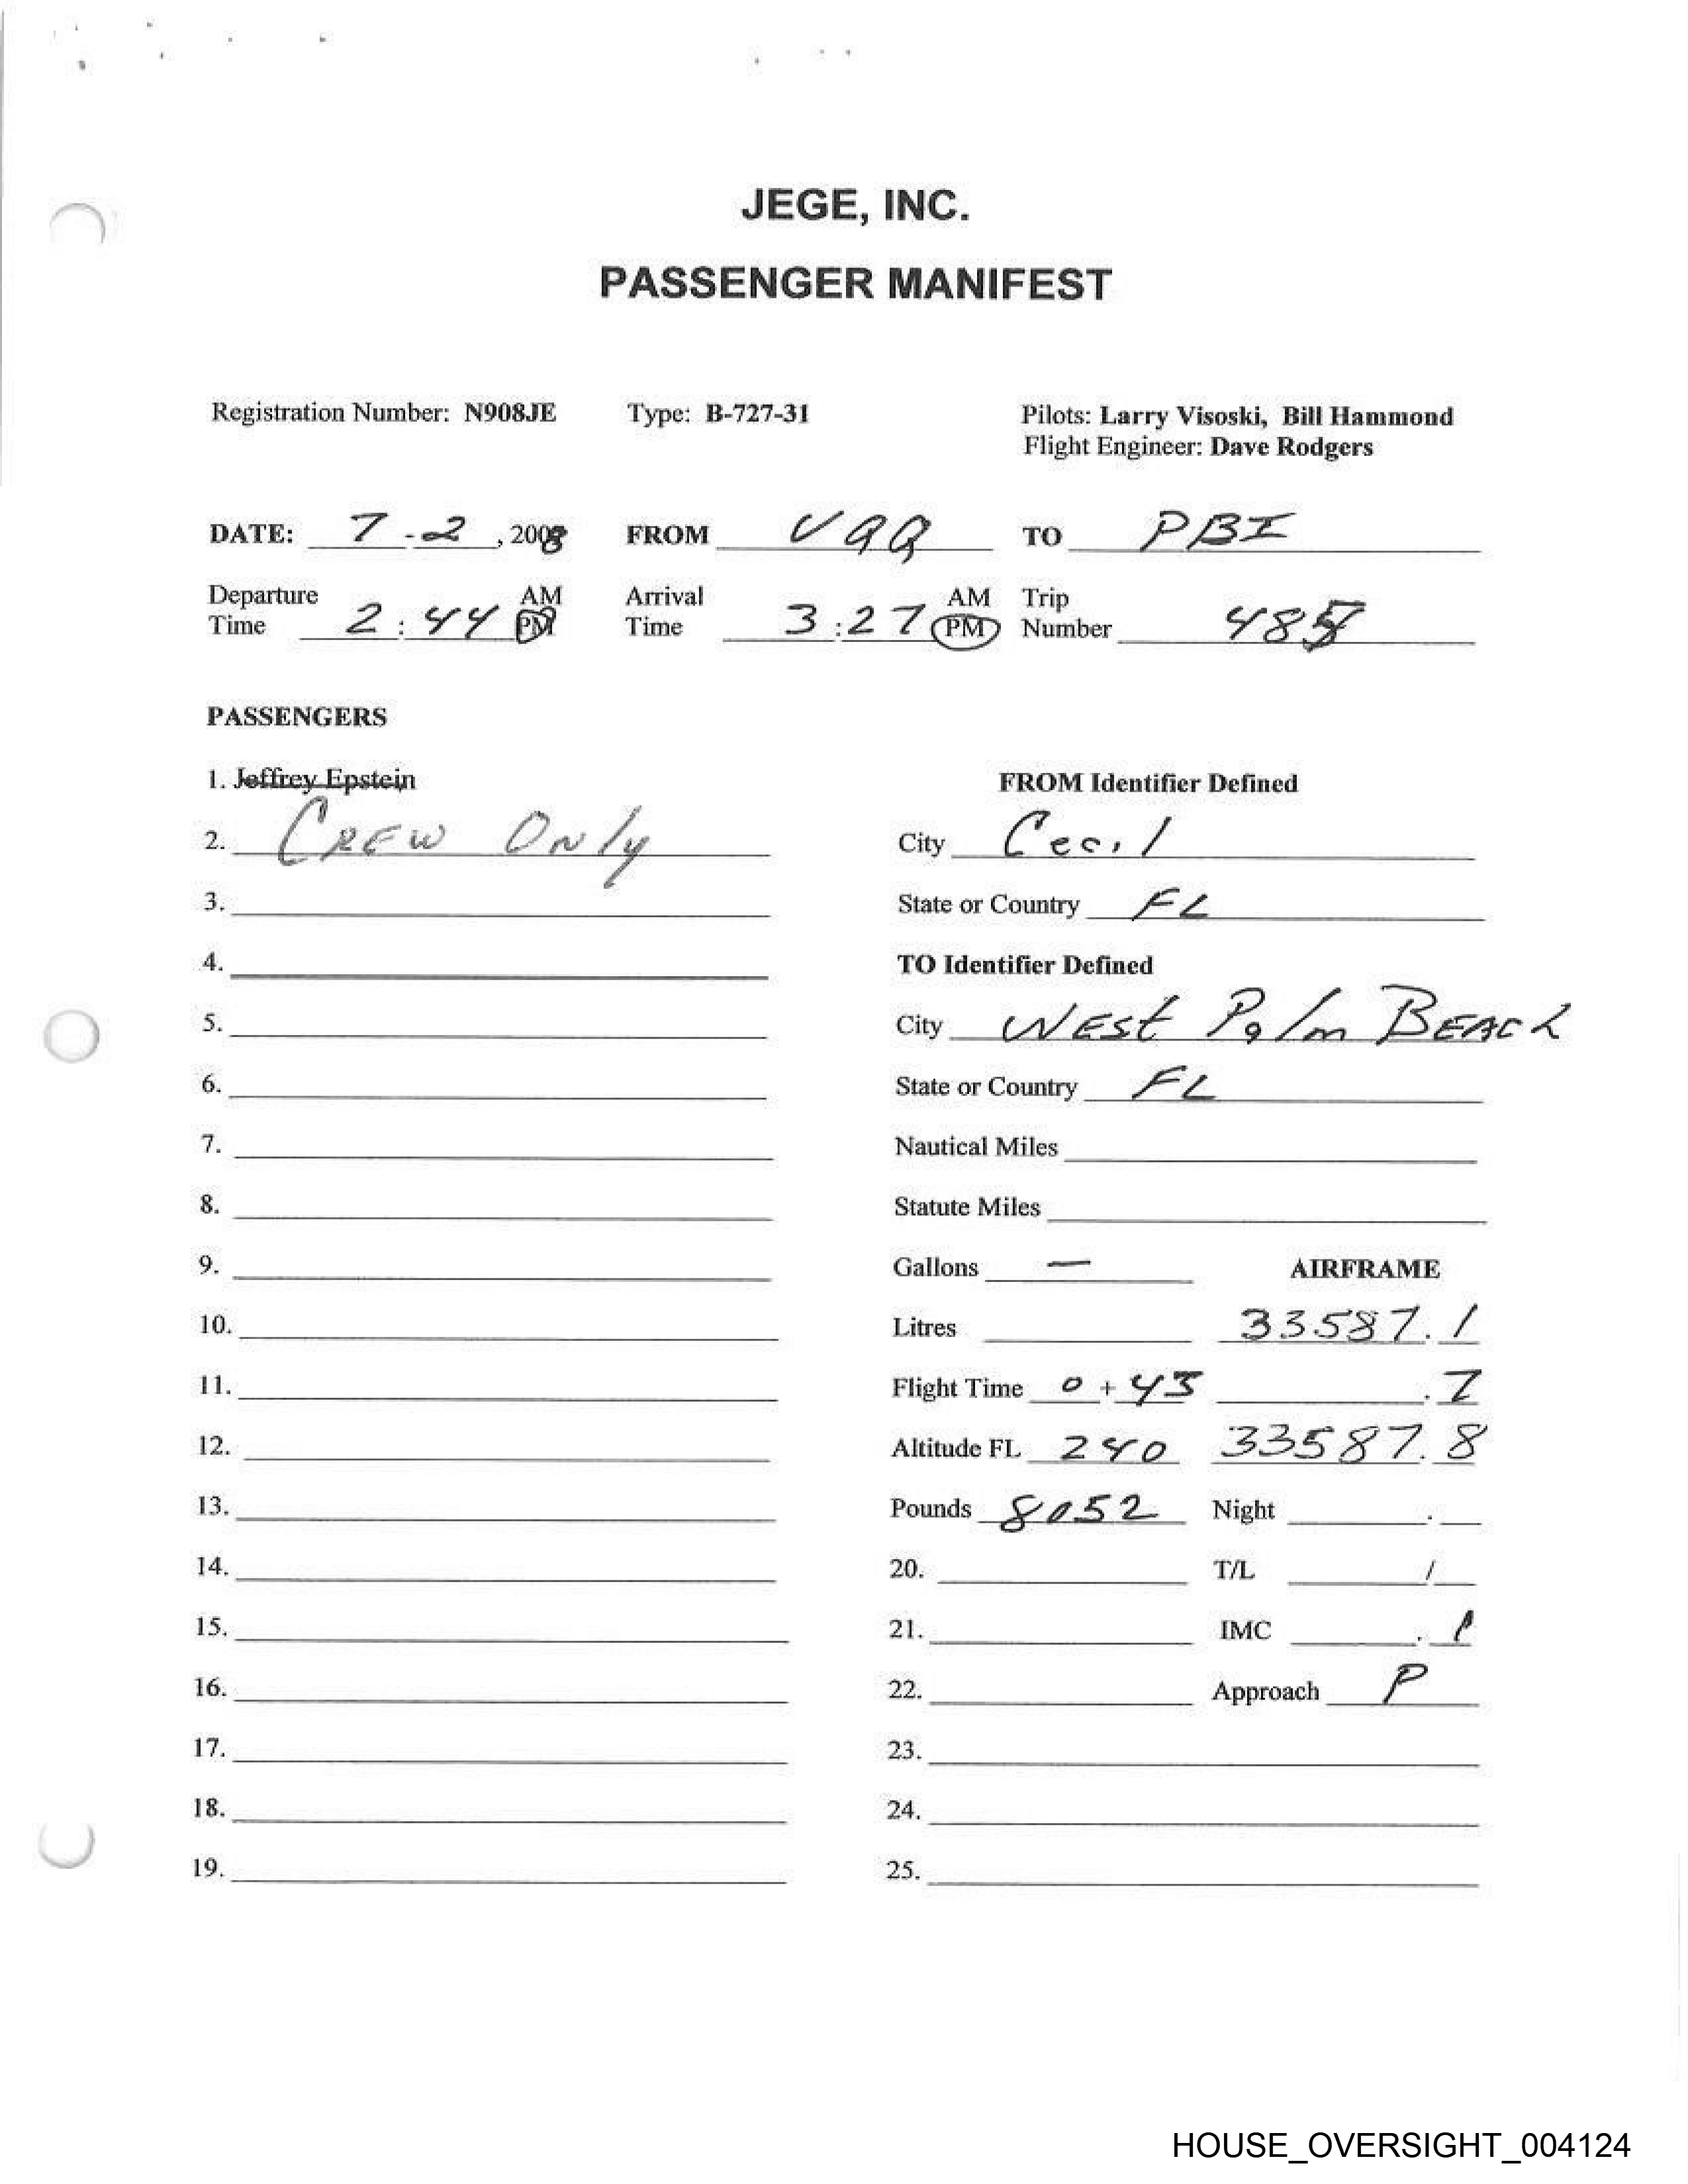 JEGE, INC.
PASSENGER MANIFEST
Registration Number: N908JE Type: B-727-31 Pilots: Larry Visoski, Bill Hammond
Flight Engineer: Dave Rodgers
DATE: 7-2, 2008 FROM VQQ TO PBI
Departure Time 2:44 AM PM Arrival Time 3:27 AM PM Trip Number
PASSENGERS
1. Jeffrey Epstein FROM Identifier Defined
2. CREW Only City Cecil
3. State or Country FL
4. TO Identifier Defined
5. City WEST Palm BEACh
6. State or Country FL
7. Nautical Miles
8. Statute Miles
9. Gallons — AIRFRAME
10. Litres 33587.1
11. Flight Time 0+43 .7
12. Altitude FL 240 33587.8
13. Pounds 8052 Night .
14. 20. T/L /
15. 21. IMC .1
16. 22. Approach P
17. 23.
18. 24.
19. 25.
HOUSE_OVERSIGHT_004124